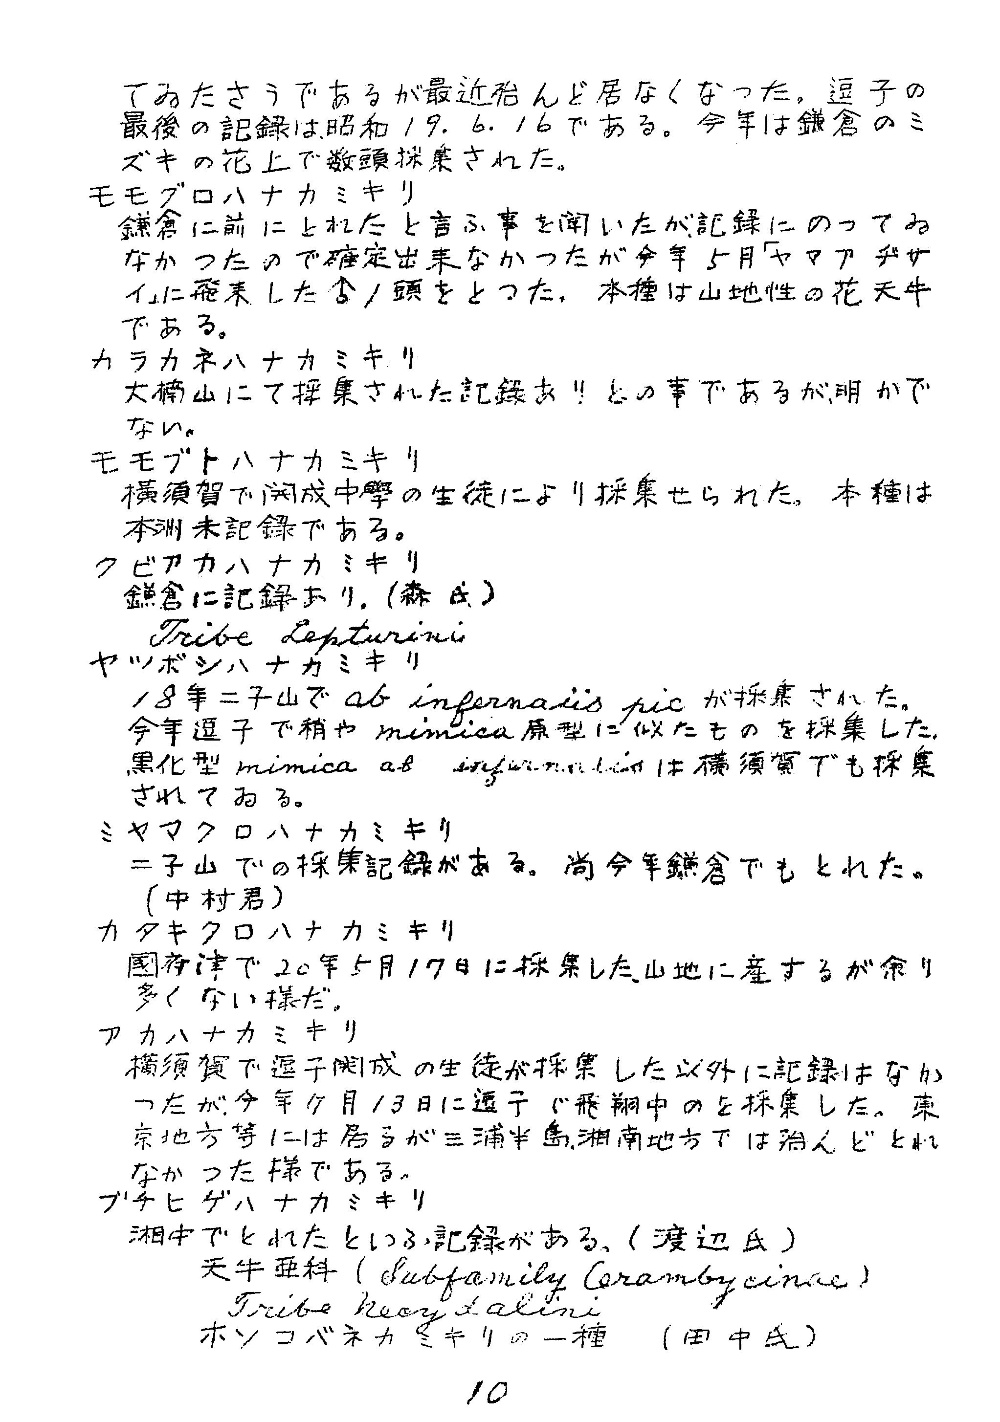 てゐたさうであるが最近殆んど居なくなつた。逗子の
最後の記録は昭和19.6.16である。今年は鎌倉のミ
ズキの花上で数頭採集された。
モモグロハナカミキリ
鎌倉に前にとれたと言ふ事を聞いたが、記録にのつてゐ
なかつたので確定出来なかつたが今年5月「ヤマアヂサ
イ」に飛来した♂1頭をとつた。本種は山地性の花天牛
である。
カラカネハナカミキリ
大楠山にて採集された記録ありとの事であるが、明かで
ない。
モモブトハナカミキリ
横須賀で開成中學の生徒により採集せられた。本種は
本洲未記録である。
クビアカハナカミキリ
鎌倉に記録あり。(森氏)
Tribe Lepturini
ヤツボシハナカミキリ
18年二子山でab infernalis picが採集された。
今年逗子で稍やmimica原型に似たものを採集した。
黒化型mimica ab infernalisは横須賀でも採集
されてゐる。
ミヤマクロハナカミキリ
二子山での採集記録がある。尚今年鎌倉でもとれた。
(中村君)
カタキクロハナカミキリ
國府津で20年5月17日に採集した、山地に産するが余り
多くない様だ。
アカハナカミキリ
横須賀で逗子開成の生徒が採集した以外に記録はなか
つたが、今年7月13日に逗子で飛翔中のを採集した。東
京地方等には居るが三浦半島、湘南地方では殆んどとれ
なかつた様である。
ブチヒゲハナカミキリ
湘中でとれたといふ記録がある、(渡辺氏)
天牛亜科(Subfamily Cerambycinae)
Tribe Necydalini
ホソコバネカミキリの一種 (田中氏)
10